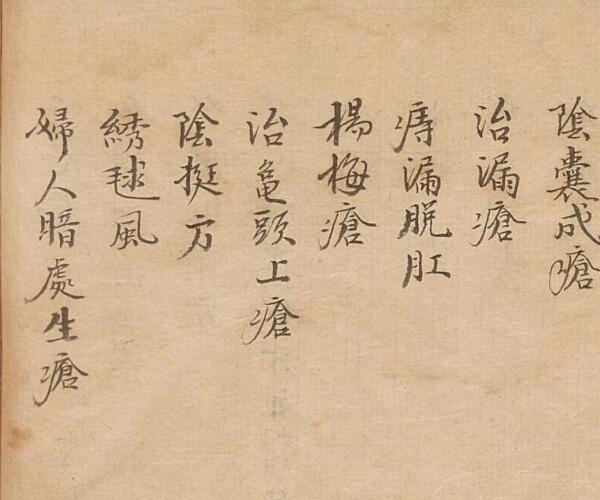 陰囊成瘡
治漏瘡
痔漏脱肛
楊梅瘡
治亀頭上瘡
陰挺方
綉毬風
婦人暗處生瘡